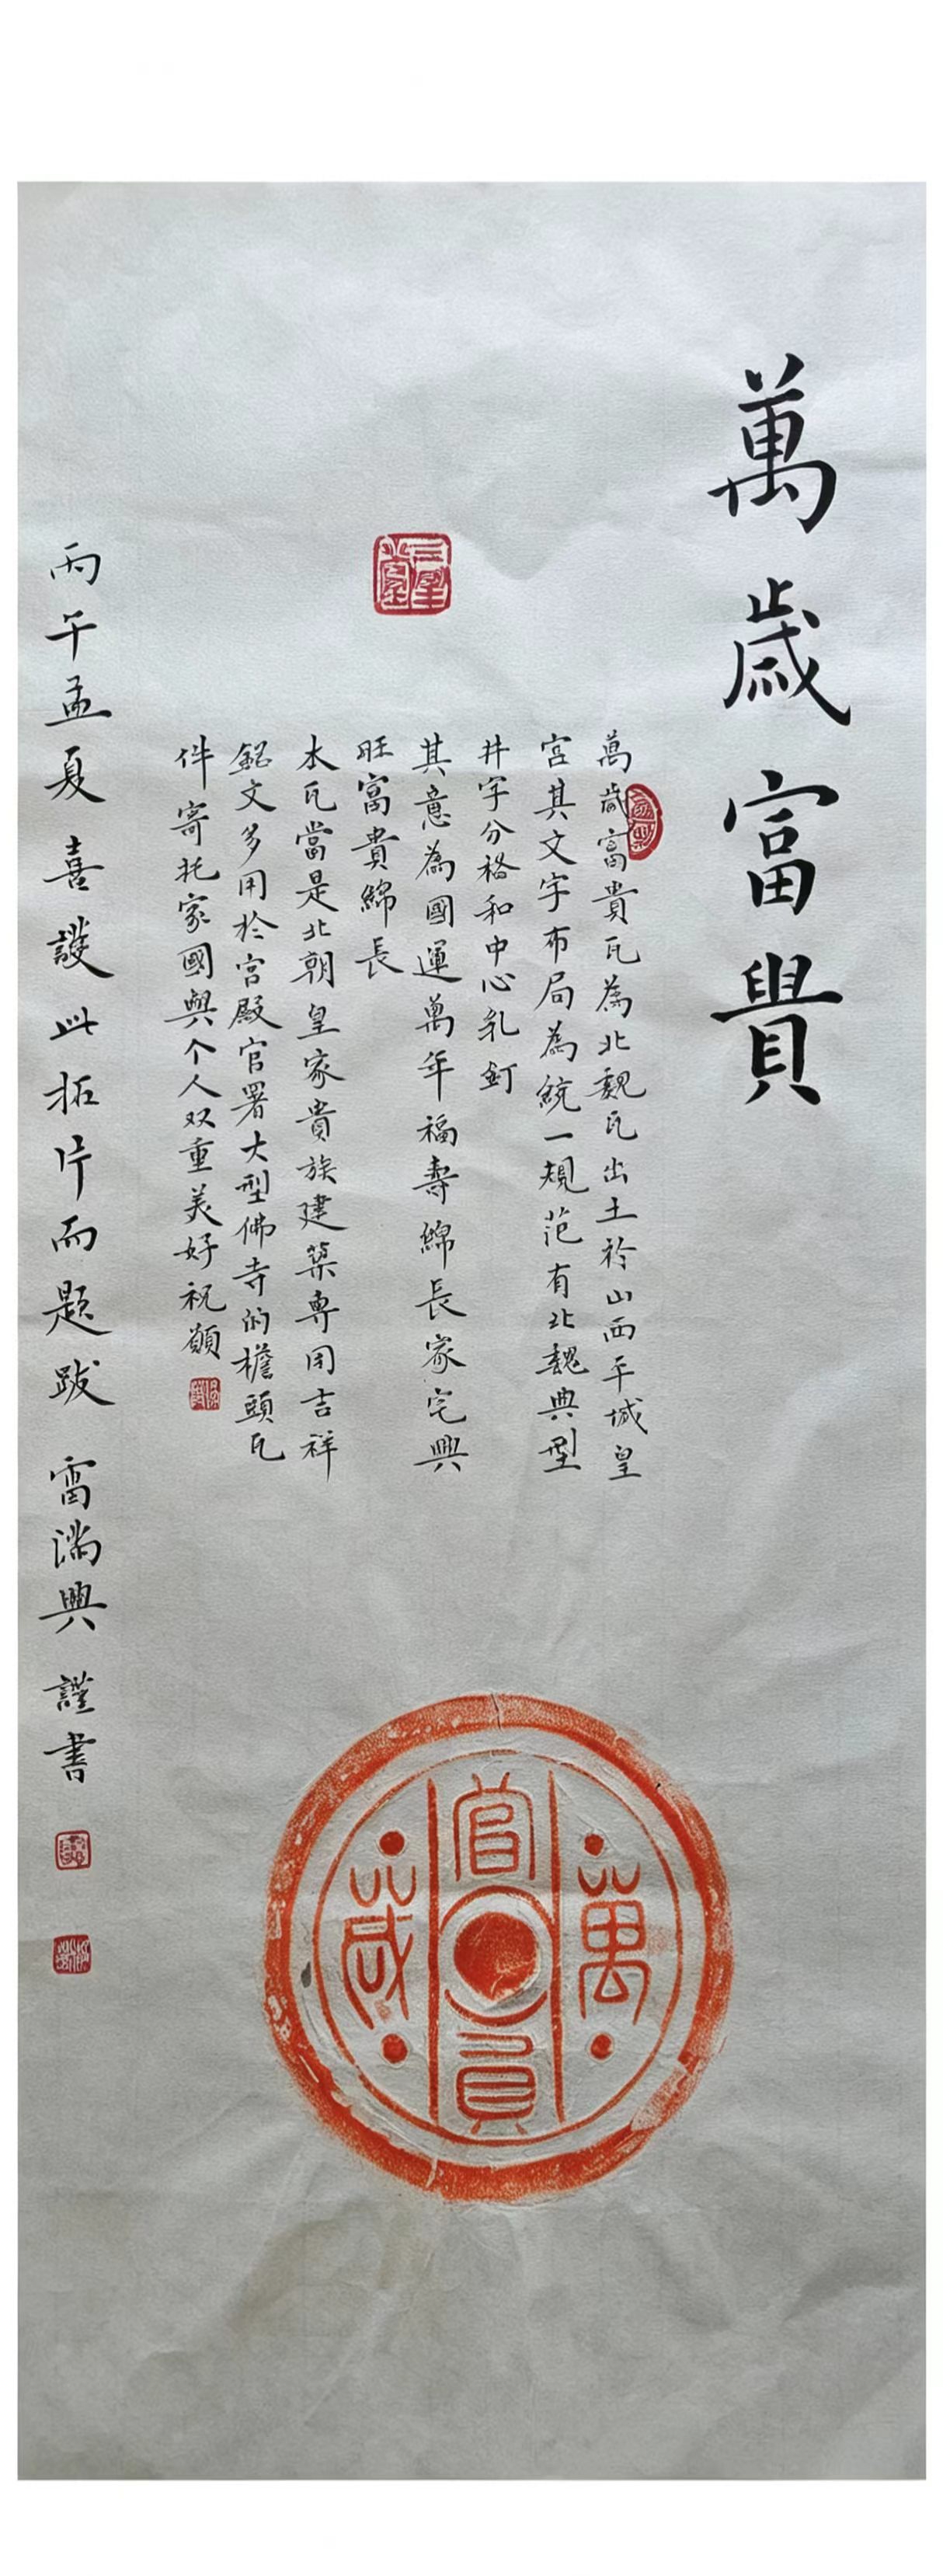 萬歲富貴
萬歲富貴瓦為北魏瓦出土於山西平城皇
宮其文字布局為統一規范有北魏典型
井字分格和中心乳釘
其意為國運萬年福壽綿長家宅興
旺富貴綿長
本瓦當是北朝皇家貴族建築專用吉祥
銘文多用於宮殿官署大型佛寺的檐頭瓦
件寄托家國與个人双重美好祝願
丙午孟夏 喜護此拓片而題跋 雷满興 謹書
萬歲富貴